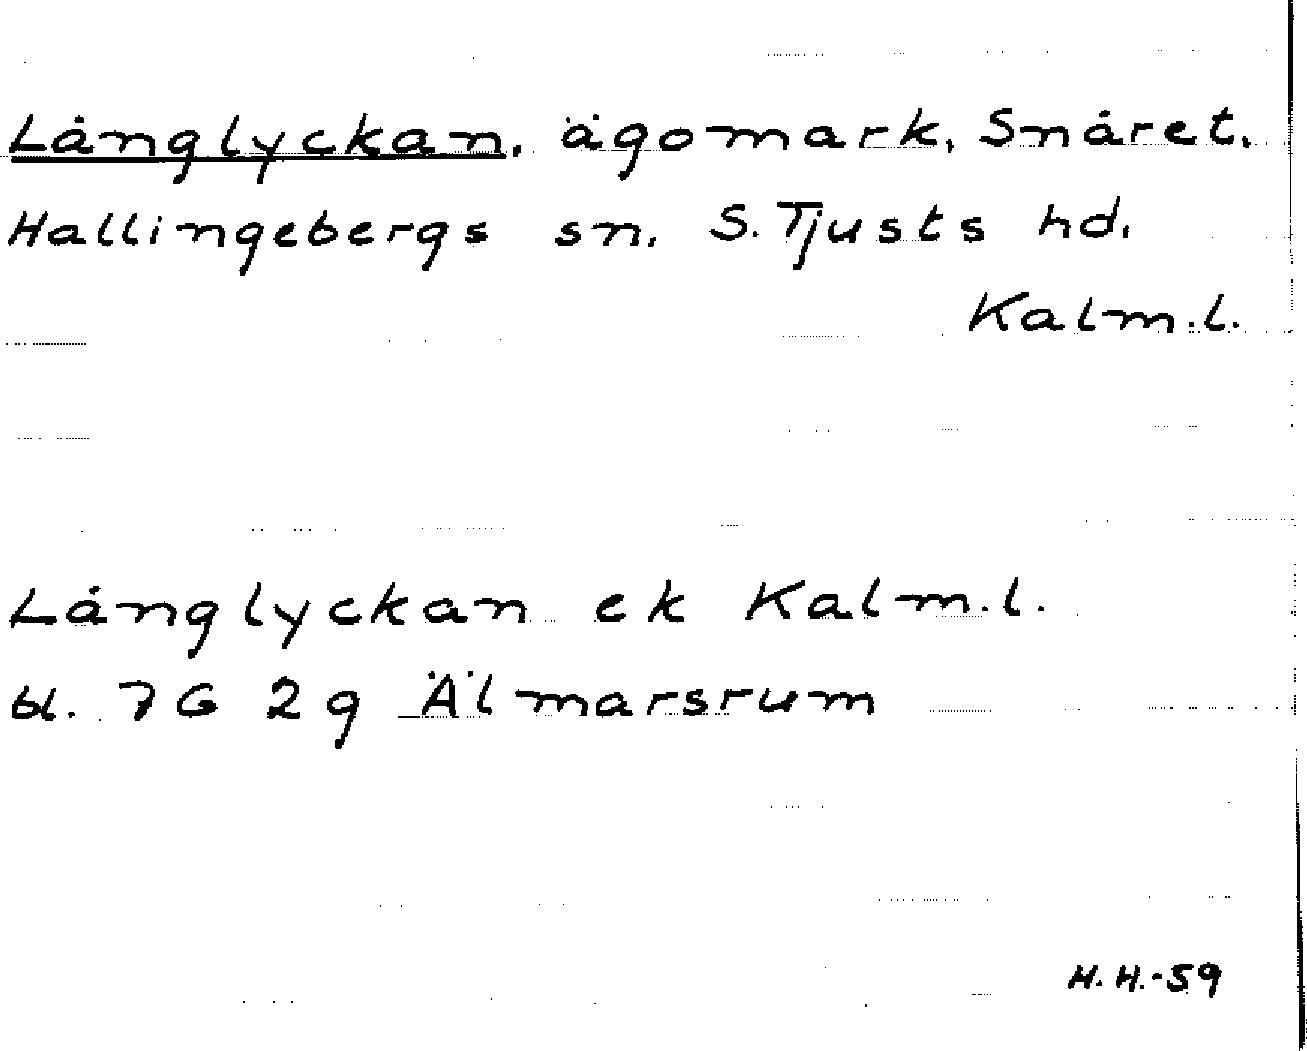 Långlyckan, ägomark, Snåret,
Hallingebergs sn, S. Tjusts hd,
Kalm.l.
Långlyckan ek Kalm.l.
bl. 7G 2g Älmarsrum
H.H.-59